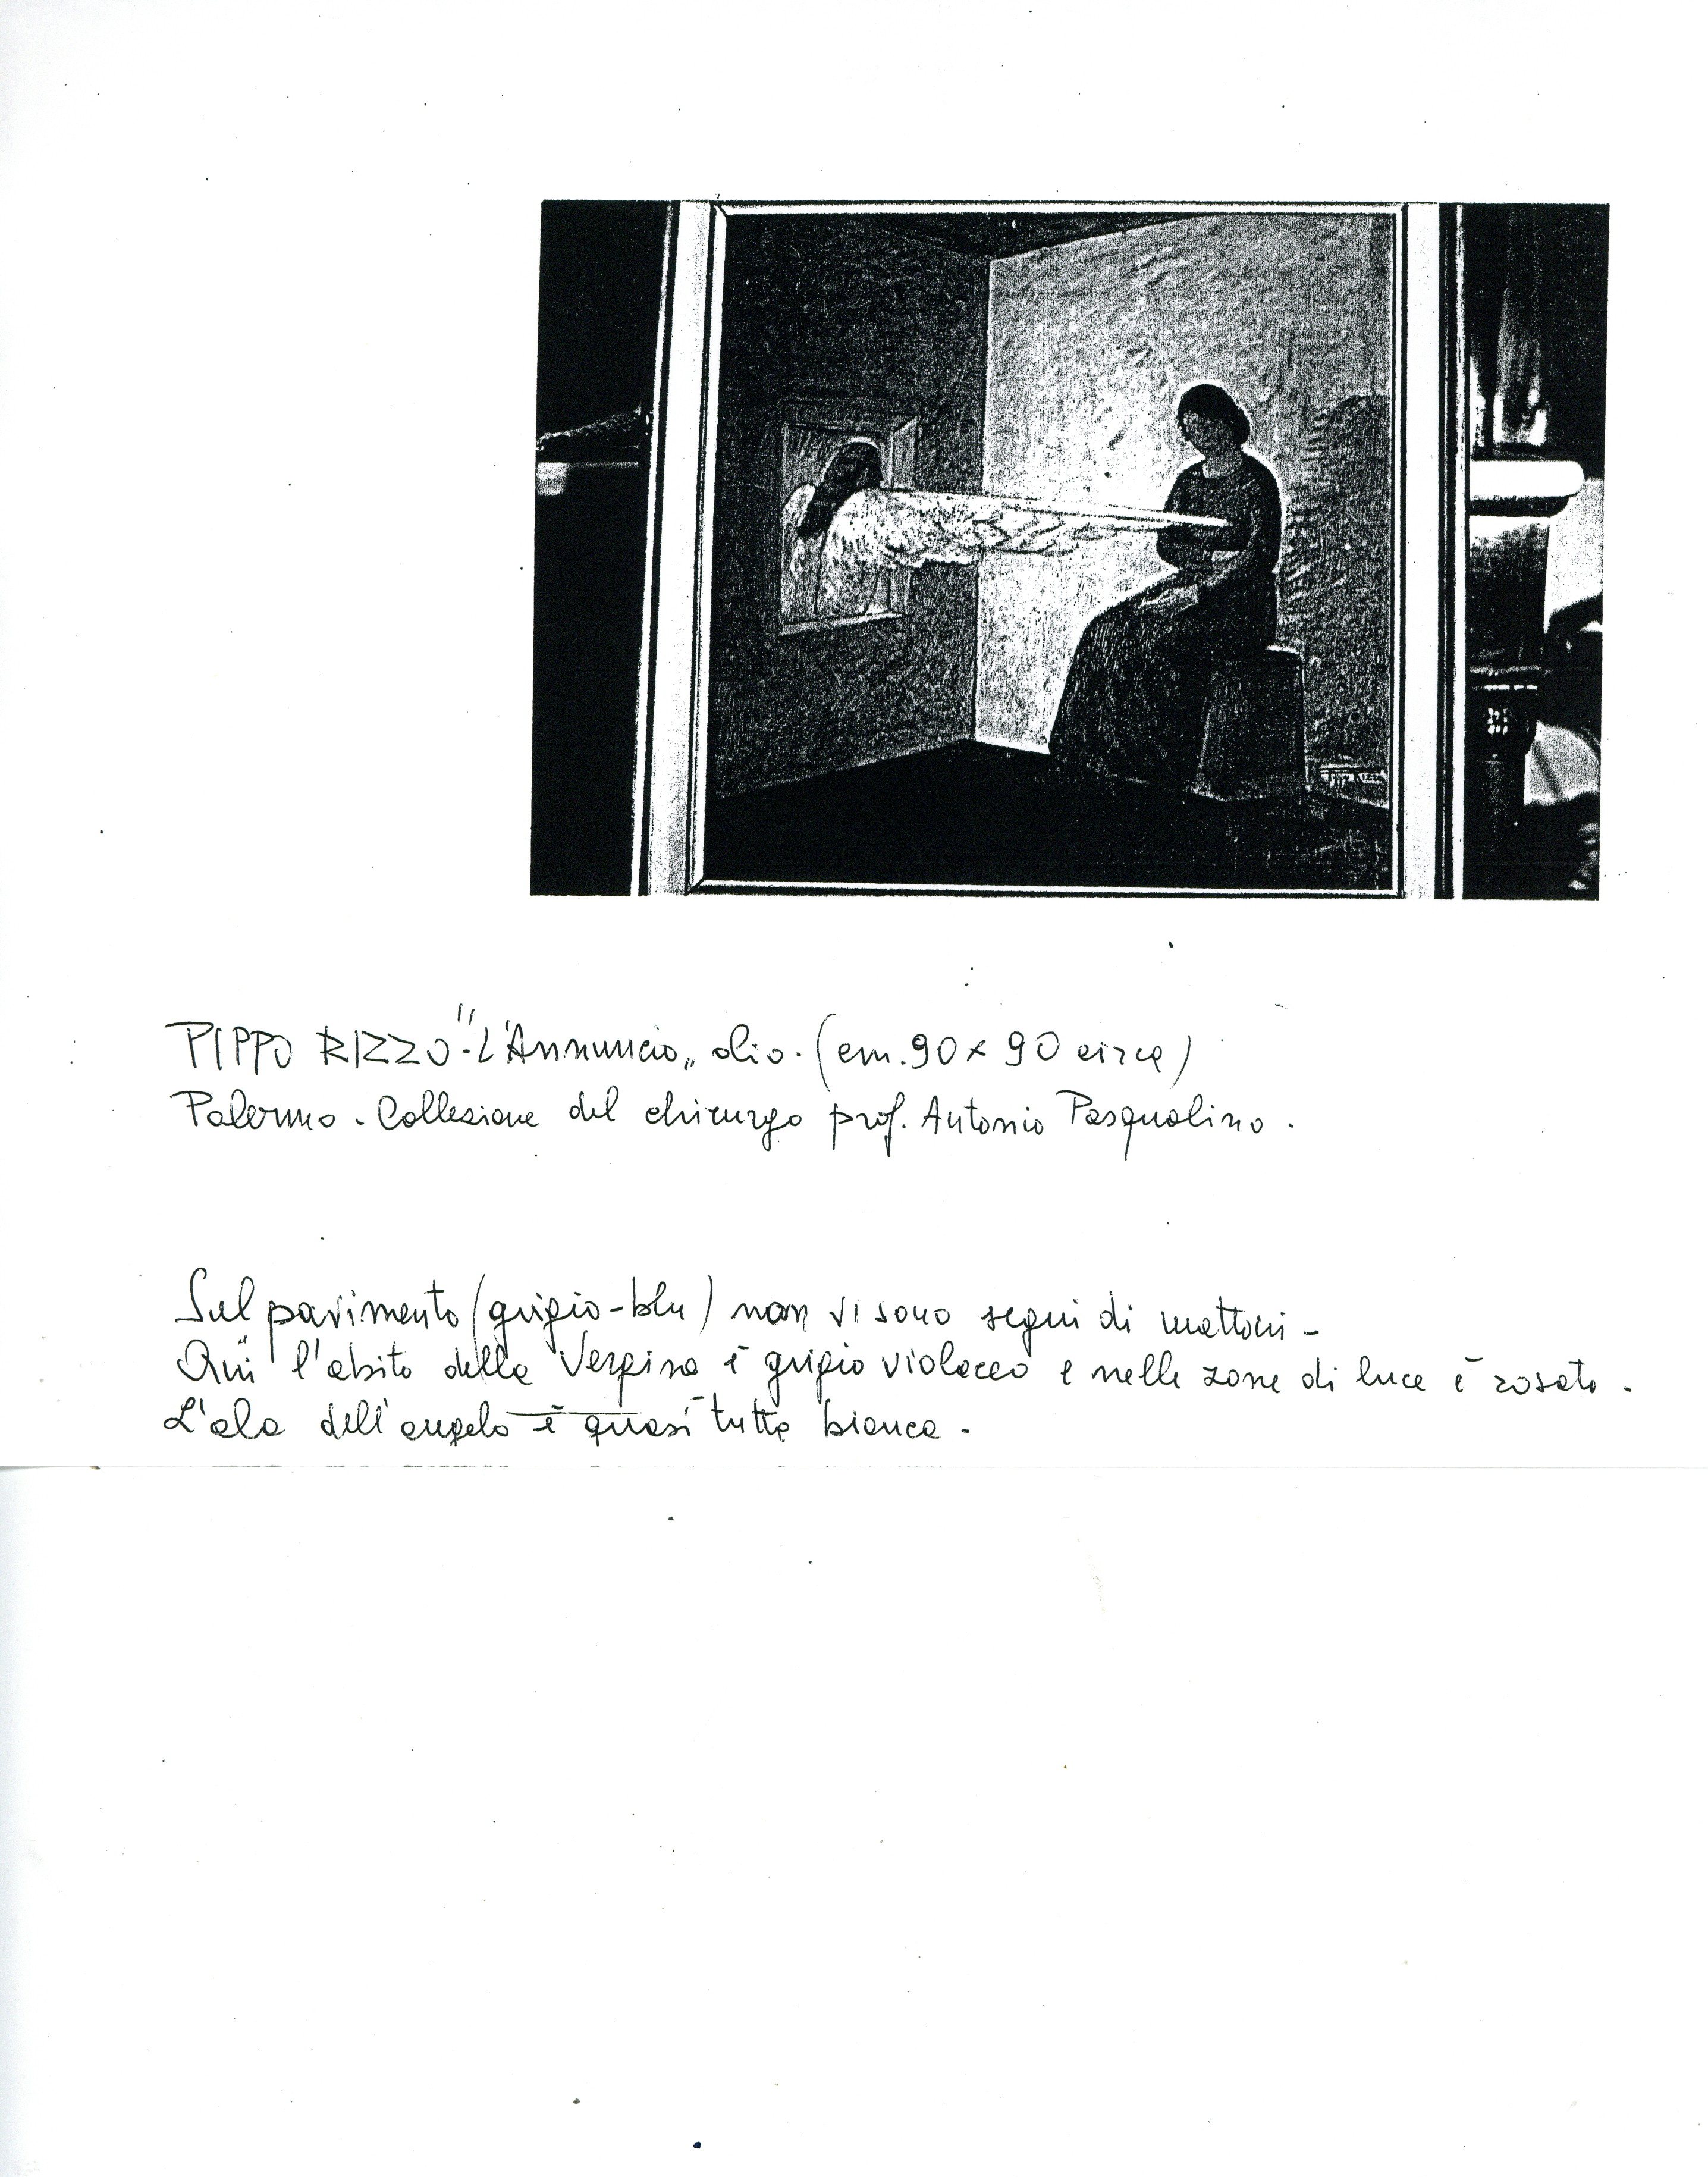 Pippo Rizzo
PIPPO RIZZO - "L'Annuncio„ olio - (cm. 90 x 90 circa)
Palermo - Collezione del chirurgo prof. Antonio Pasqualino.
Sul pavimento (grigio-blu) non vi sono segni di mattoni -
Qui l'abito della Vergine è grigio violaceo e nelle zone di luce è rosato.
L'ala dell'angelo è quasi tutta bianca -